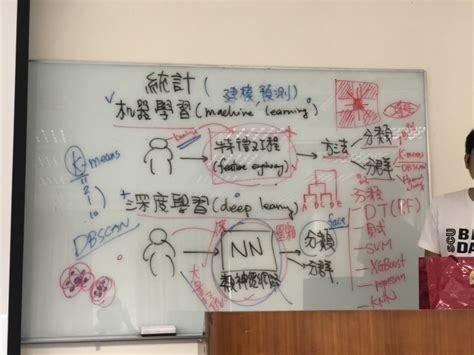 統計(建模預測)
机器學習(machine learning)
特徵工程
(feature
方法
分類
分群
K-means
DBSCAN
K-means
DBSCAN
深度學習(deep learning)
NN
神經網路
face
分類
分群
分類
DT(RF)
SVM
XGBoost
regression
KNN
SCU
BA
DA